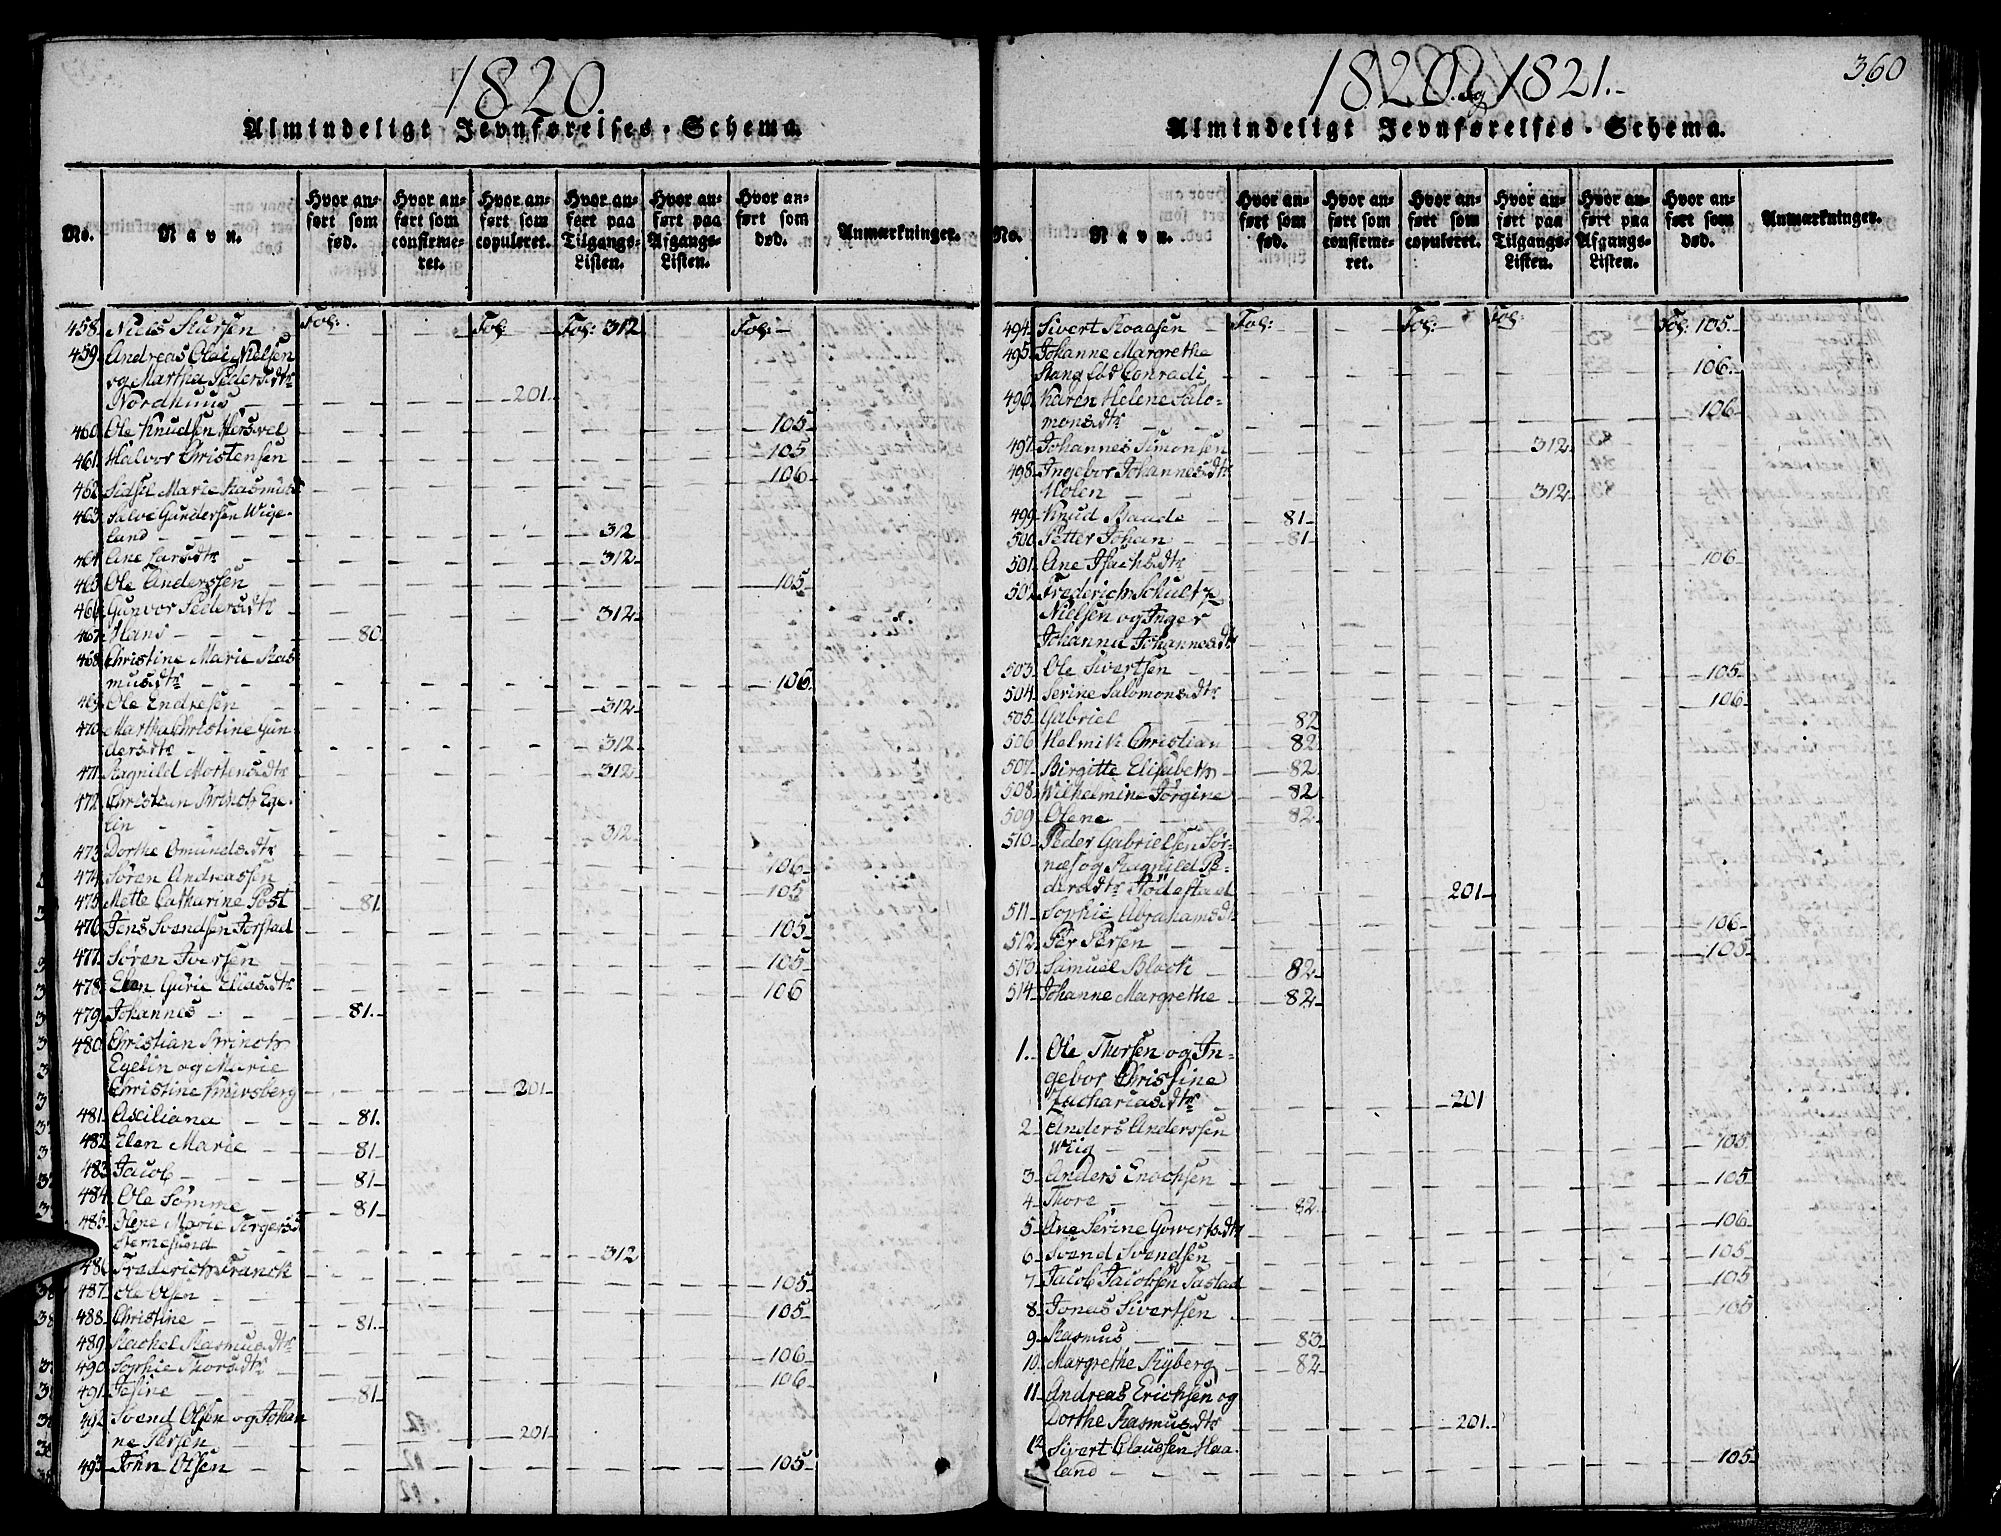 1820.
Almindeligt Jevnførelses-Schema.
No.
Navn.
Hvor anført som fød.
Hvor anført som confirmeret.
Hvor anført som copuleret.
Hvor anført paa Tilgangs-Listen.
Hvor anført paa Afgangs-Listen.
Hvor anført som død.
Anmærkninger.
458. Niels Fol: Fol: Fol: 312 Fol:
459. Andreas Olai Nielsen
og Martha Peders.dtr
Nordhuus 201.
460. Ole Knudsen 105
461. Halvor Christensen 105
462. Sidsel Marie Rasmus 106
463. Salve Gundersen Wige-
land 312
464. Ane Lars.dtr 312
465. Ole Anderssen 105
466. Gunvor Peders.dtr 312
467. Hans 80.
468. Christine Marie Ras
mus.dtr 106.
469. Ole Endresen 312
470. Martha Christine Gun-
ders.dtr 312
471. Ragnild Mortens.dtr 312
472. Christian Brinch Ege-
lin 312
473. Dorthe Omunds.dtr 106
474. Søren Andreassen 105
475. Mette Catharine Post 81.
476. Jens Svendsen 105
477. Søren Iversen 105
478. Elen Gurie Elias.dtr 106
479. Johannes 81.
480. Christian Brinch
Egelin og Marie
Christine Knivsberg 201.
481. Axiliana 81.
482. Elen Marie 81
483. Jacob 81
484. Ole Sømme 81
485. Olene Marie
312
486. Frederich Franck 105
487. Ole Olsen 105
488. Christine 81.
489. Rachel Rasmus.dtr 106
490. Sophie Thors.dtr 106
491. Jesine 81
492. Svend Olsen og Johan
ne Persen 201.
493. John Olsen 105
1820 og 1821.
360
Almindeligt Jevnførelses-Schema.
No.
Navn.
Hvor anført som fød.
Hvor anført som confirmeret.
Hvor anført som copuleret.
Hvor anført paa Tilgangs-Listen.
Hvor anført paa Afgangs-Listen.
Hvor anført som død.
Anmærkninger.
494. Sivert Roaldsen Fol: Fol: Fol: Fol: 105.
495. Johanne Margrethe
Stang fød Conradi 106.
496. Karen Helene Salo-
mons.dtr 106
497. Johannes Simonsen 312
498. Ingebor Johannes.dtr
Holen 312
499. Knud Baade 81
500. Petter Johan 81
501. Ane Isachs.dtr 106
502. Frederich Schultz
Nielsen og Inger
Johanna Johannes.dtr
503. Ole Sivertsen 105
504. Serine Salomons.dtr 106
505. Gabriel 82
506. Helmik Christian 82
507. Birgitte Elisabeth 82
508. Wilhelmine Jørgine 82
509. Olene 82
510. Peder Gabrielsen Sør-
næs og Ragnild Pe-
ders.dtr Rødestad 201
511. Sophie Abrahams.dtr 106
512. Per Persen 105
513. Samuel Block 82
514. Johanne Margrethe 82
1. Ole Thorsen og In-
gebor Christine
Zacharias.dtr 201
2. Anders Anderssen
Wiig 105
3. Anders Enochsen 105
4. Thore 82
5. Ane Serine Gowerts.dtr 106
6. Svend Svendsen 105
7. Jacob Jacobsen 105
8. Jonas Sivertsen 105
9. Rasmus 83
10. Margrethe Ryberg 82
11. Andreas Erichsen og
Dorthe Rasmus.dtr 201.
12. Sivert Claussen Haa-
land 105